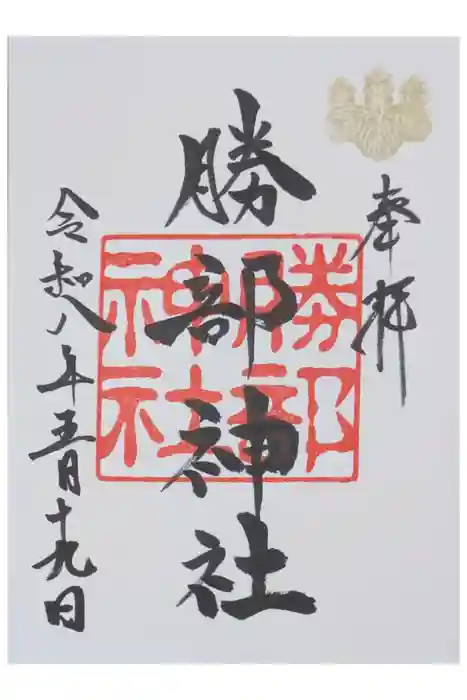 奉拝
勝部神社
勝部
神社
令和八年五月十九日